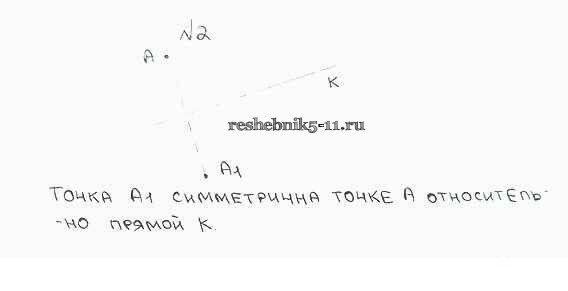 №2
А
К
reshebnik5-11.ru
А1
Точка А1 симметрична точке А относитель-
-но прямой К.